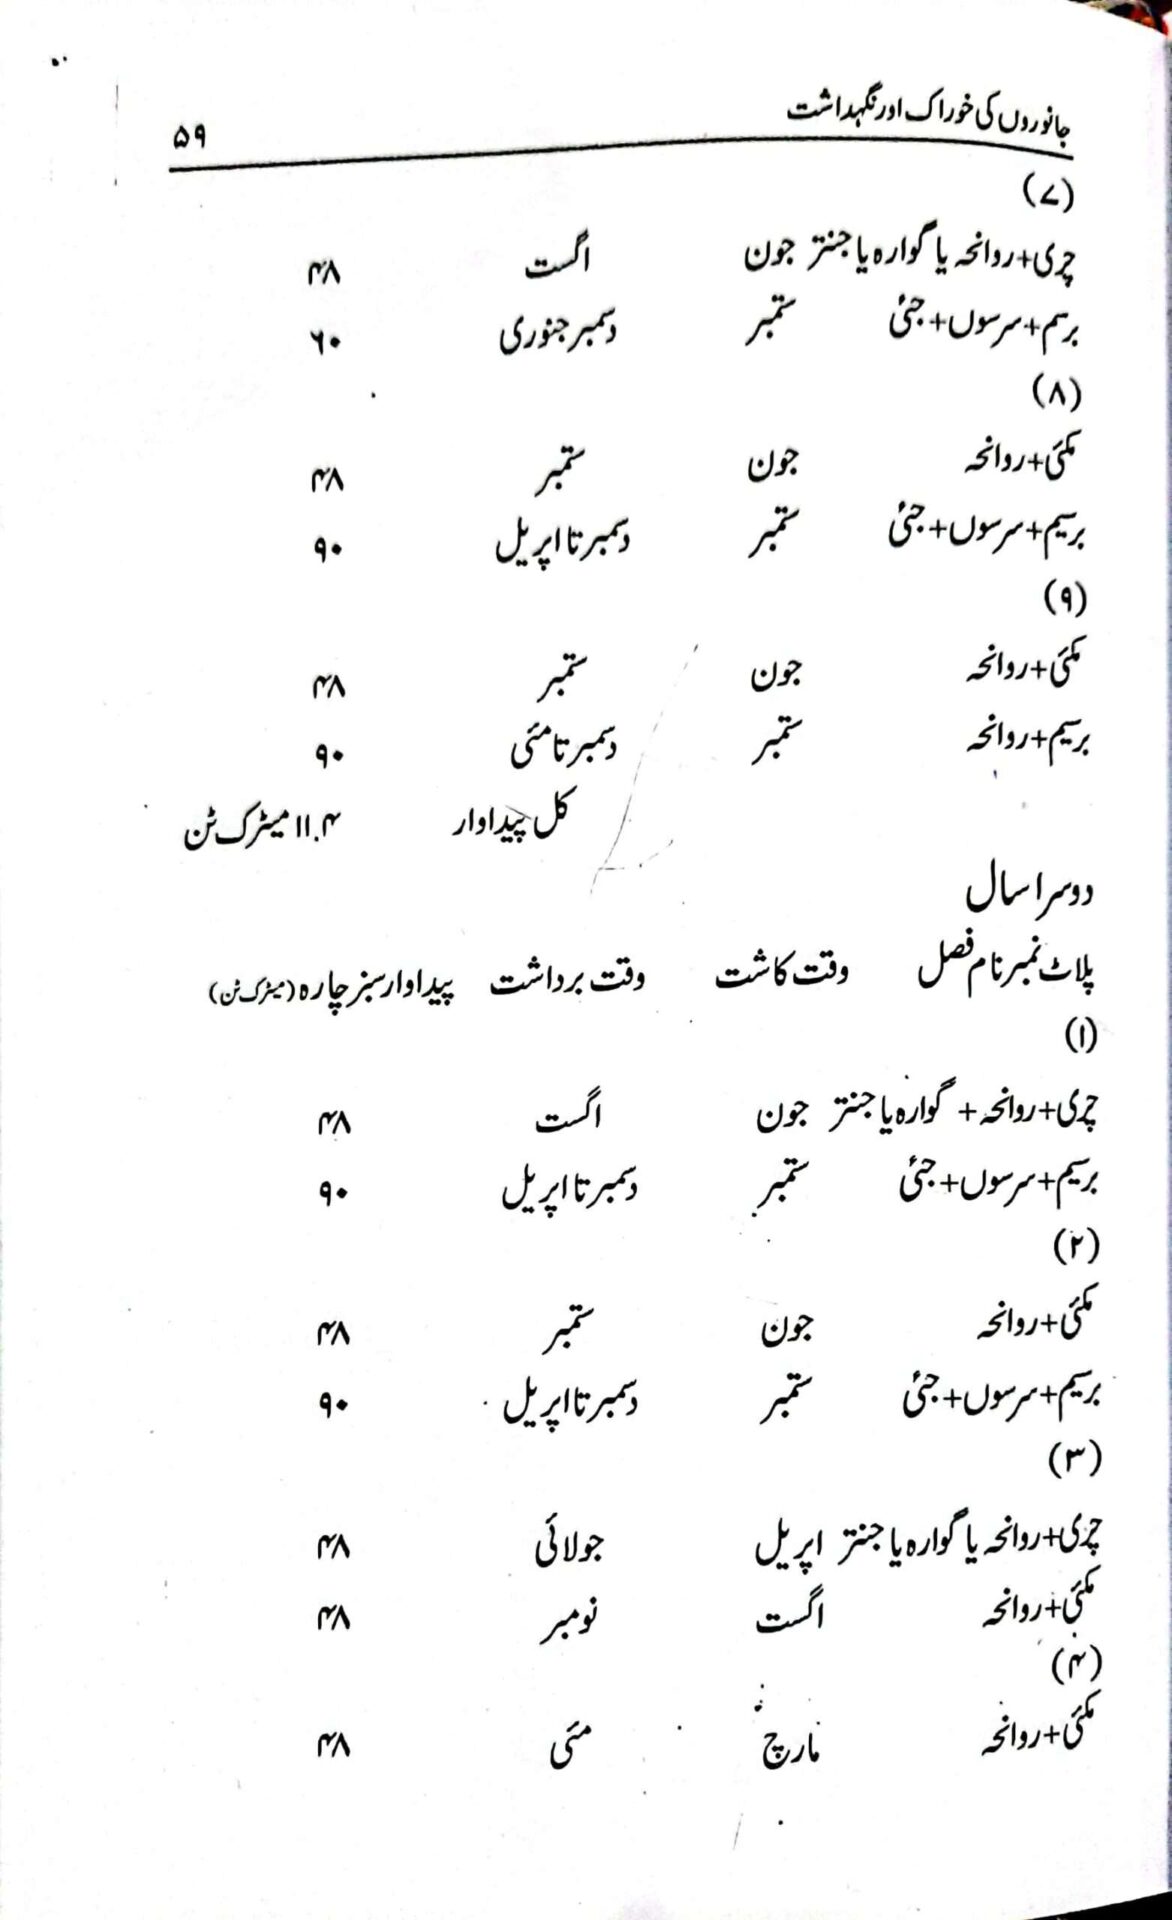 جانوروں کی خوراک اور نگہداشت ۵۹
(۷)
چری+روانحہ یا گوارہ یا جنتر جون اگست ۴۸
برسم+سرسوں+جئی ستمبر دسمبر جنوری ۶۰
(۸)
مکئی+روانحہ جون ستمبر ۴۸
برسیم+سرسوں+جئی ستمبر دسمبر تا اپریل ۹۰
(۹)
مکئی+روانحہ جون ستمبر ۴۸
برسیم+روانحہ ستمبر دسمبر تا مئی ۹۰
کل پیداوار ۱۱.۴ میٹرک ٹن
دوسرا سال
پلاٹ نمبر نام فصل وقت کاشت وقت برداشت پیداوار سبز چارہ (میٹرک ٹن)
(۱)
چری+روانحہ + گوارہ یا جنتر جون اگست ۴۸
برسیم+سرسوں+جئی ستمبر دسمبر تا اپریل ۹۰
(۲)
مکئی+روانحہ جون ستمبر ۴۸
برسیم+سرسوں+جئی ستمبر دسمبر تا اپریل ۹۰
(۳)
چری+روانحہ یا گوارہ یا جنتر اپریل جولائی ۴۸
مکئی+روانحہ اگست نومبر ۴۸
(۴)
مکئی+روانحہ مارچ مئی ۴۸